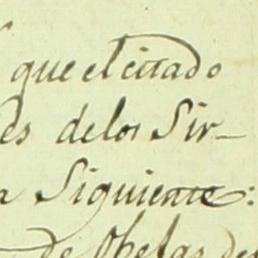 que el citado
es de los Sir-
a Siguiente:
de Obejas de